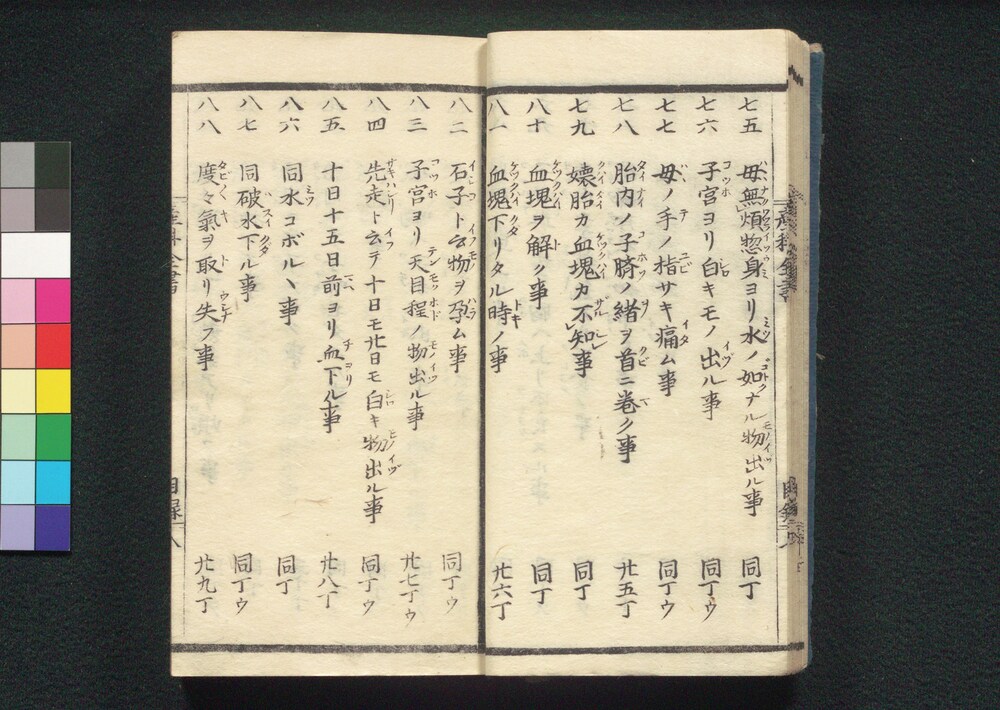 七五 母無煩惣身ヨリ水ノ如ナル物出ル事 同丁
七六 子宮ヨリ白キモノ出ル事 同丁ウ
七七 母ノ手ノ指サキ痛ム事 同丁ウ
七八 胎内ノ子臍ノ緒ヲ首ニ巻ク事 廿五丁
七九 懐胎カ血塊カ不知事 同丁
八十 血塊ヲ解ク事 同丁
八一 血塊下リタル時ノ事 廿六丁
八二 石子ト云物ヲ孕ム事 同丁ウ
八三 子宮ヨリ天目程ノ物出ル事 廿七丁ウ
八四 先走ト云テ十日モ廿日モ白キ物出ル事 同丁ウ
八五 十日十五日前ヨリ血下ル事 廿八丁
八六 同水コボルヽ事 同丁
八七 同破水下ル事 同丁ウ
八八 度々氣ヲ取リ失フ事 廿九丁